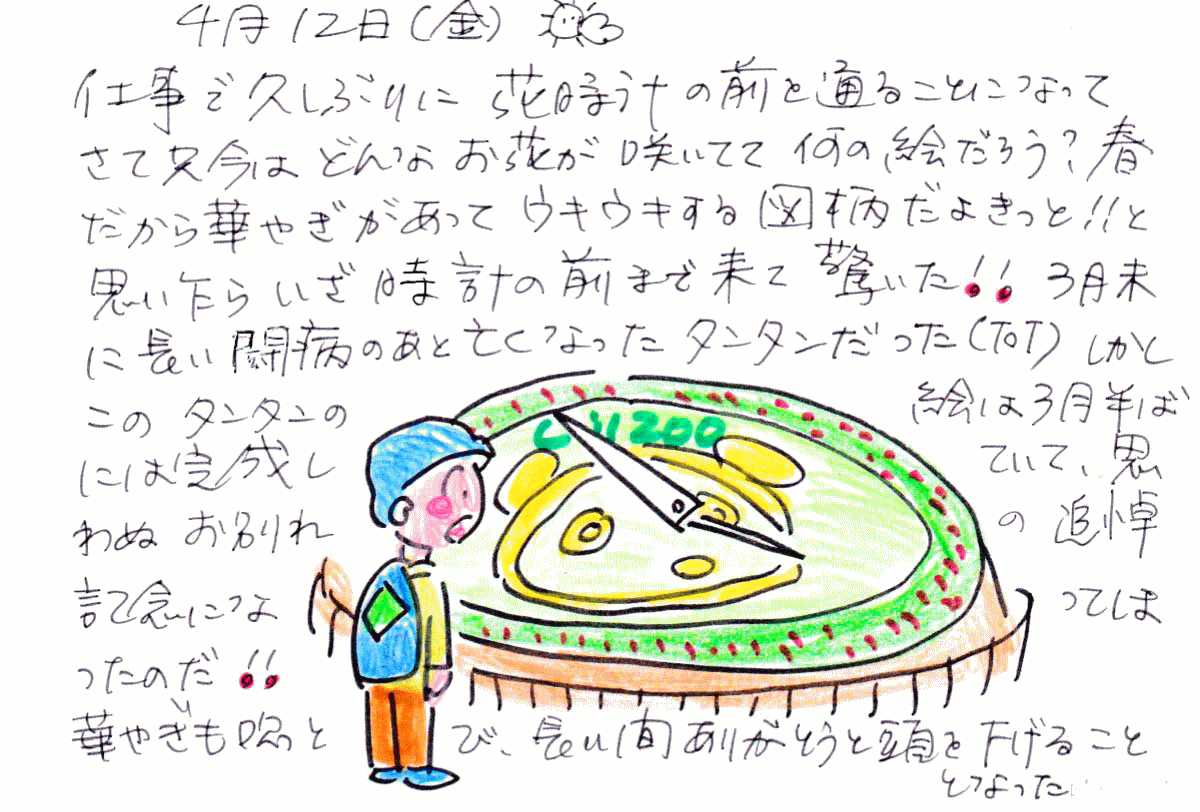 4月12日(金)
仕事で久しぶりに 花時計の前を通ることになって
さて只今は どんな お花が 咲いてて 何の絵だろう?春
だから華やぎがあって ウキウキする図柄だよきっと!!と
思い乍ら いざ 時計の前まで来て 驚いた!! 3月末
に長い闘病のあと亡くなったタンタンだった(ToT) しかし
この タンタンの 絵は3月半ば
には完成し ていて、思
わぬ お別れ の 追悼
記念にな ってしま
ったのだ!!
200
華やぎも吹っと び、長い間ありがとうと頭を下げること
となった